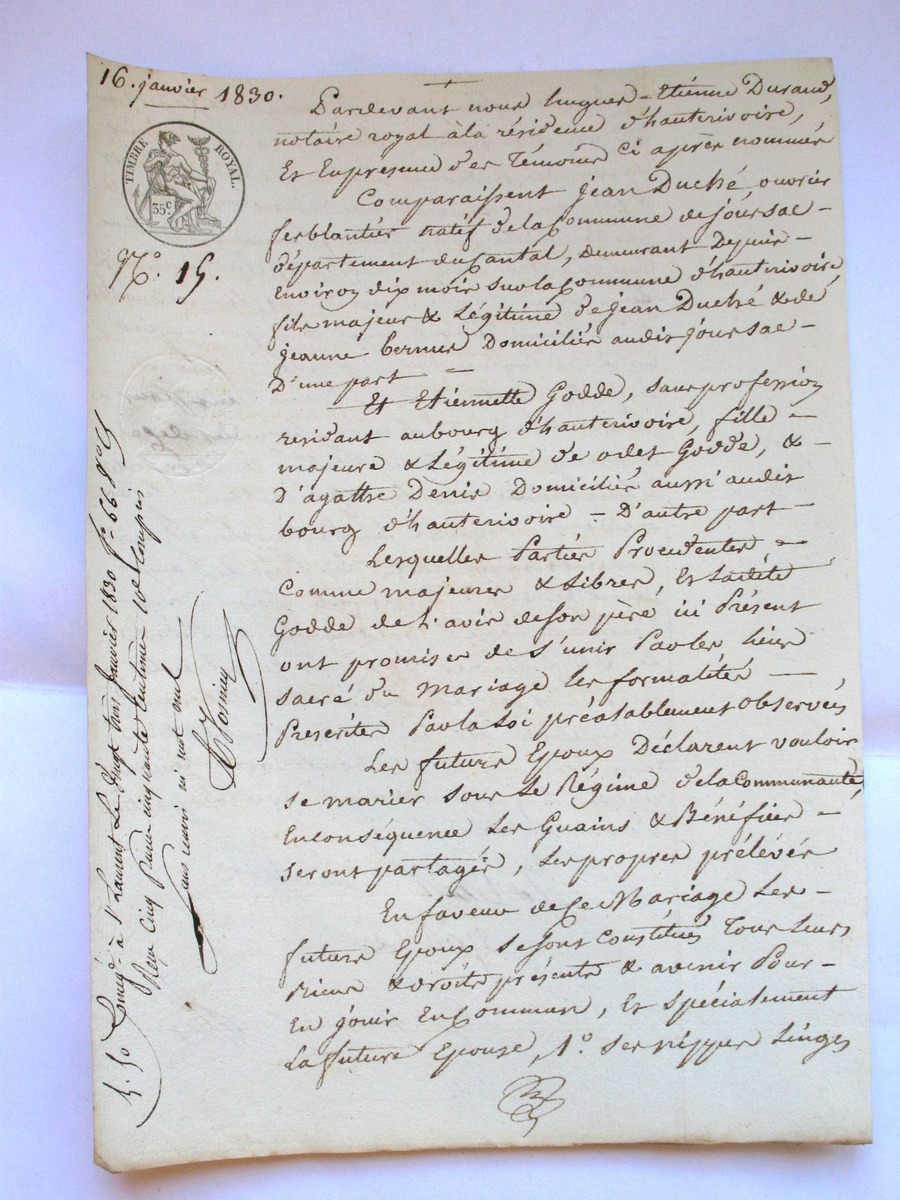 16. janvier 1830.
TIMBRE ROYAL.
35c
No. 15.
Pardevant nous hugues - Etienne Durand,
notaire royal à la résidence d'hauterivoire,
Et En presence des Témoins Ci après nommés
Comparaissent jean Duché, ouvrier
ferblantier natif de la Commune de joursac -
département du Cantal, demeurant Depuis -
Environ dix mois sur la Commune d'hauterivoire,
fils majeur & Légitime de jean Duché & de
jeanne Domiciliés audit joursac -
D'une part -
Et Etiennette Godde, sans profession
residant au bourg d'hauterivoire, fille -
majeure & Légitime de Godde, &
D'agathe Denis Domiciliés aussi audit
bourg d'hauterivoire - D'autre part -
Lesquelles Parties Procédentes, -
Comme majeures & Libres, Et Ladite
Godde de l'avis de son père ici Présent
ont promises de s'unir Par les liens
sacré du Mariage les formalités -
Prescrites Par la Loi préalablement observées
Les futurs Epoux Déclarent vouloir
se marier sous Le Régime de la Communauté,
En conséquence Les Guains & Bénéfices -
seront partagés, Les propres prélévés
En faveur de Ce Mariage Les -
futurs Epoux se sont Constitués Tous Leurs
Biens & droits présents & avenir Pour -
En jouir En Commun, Et spécialement
La future Epouse, 1.° ses nippes Linges
5. 50 Enreg. à St Laurent Le vingt trois janvier 1830 f.° 66
Reçu Cinq francs cinquante Centimes 10e Compris
sans renvoi ni mot nul